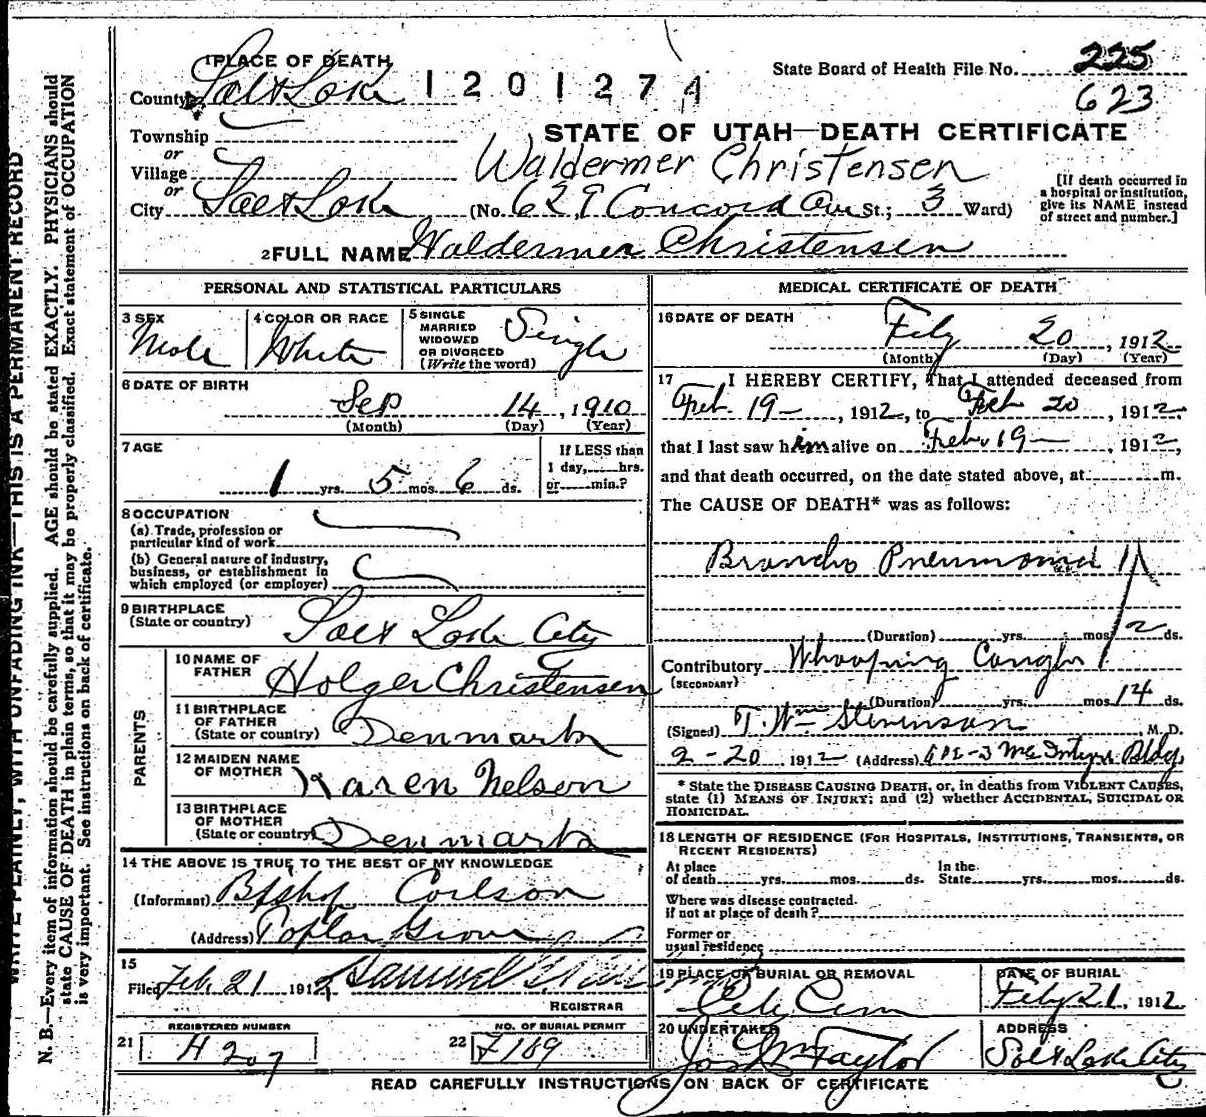 1 PLACE OF DEATH
State Board of Health File No. 225
County Salt Lake
1201274
623
Township
STATE OF UTAH—DEATH CERTIFICATE
or
Village
Waldermer Christensen
or
City Salt Lake (No. 629 Concord Ave St.; 3 Ward)
[If death occurred in
a hospital or institution,
give its NAME instead
of street and number.]
2 FULL NAME Waldermer Christensen
PERSONAL AND STATISTICAL PARTICULARS
3 SEX
Male
4 COLOR OR RACE
White
5 SINGLE
MARRIED
WIDOWED
OR DIVORCED
(Write the word)
Single
6 DATE OF BIRTH
Sep 14, 1910
(Month) (Day) (Year)
7 AGE
1 yrs. 5 mos. 6 ds.
If LESS than
1 day, hrs.
or min.?
8 OCCUPATION
(a) Trade, profession or
particular kind of work
(b) General nature of industry,
business, or establishment in
which employed (or employer)
9 BIRTHPLACE
(State or country)
Salt Lake City
PARENTS
10 NAME OF
FATHER
Holger Christensen
11 BIRTHPLACE
OF FATHER
(State or country)
Denmark
12 MAIDEN NAME
OF MOTHER
Karen Nelson
13 BIRTHPLACE
OF MOTHER
(State or country)
Denmark
14 THE ABOVE IS TRUE TO THE BEST OF MY KNOWLEDGE
(Informant) Bishop Carlson
(Address) Poplar Grove
15
Filed Feb. 21 1912
REGISTRAR
REGISTERED NUMBER
21 H207
NO. OF BURIAL PERMIT
22 F189
MEDICAL CERTIFICATE OF DEATH
16 DATE OF DEATH
Feby 20, 1912
(Month) (Day) (Year)
17 I HEREBY CERTIFY, That I attended deceased from
Feb. 19, 1912, to Feb 20, 1912
that I last saw him alive on Feb. 19, 1912,
and that death occurred, on the date stated above, at m.
The CAUSE OF DEATH* was as follows:
Broncho Pneumonia
(Duration) yrs. mos. 2 ds.
Contributory Whooping Cough
(SECONDARY)
(Duration) yrs. mos. 14 ds.
(Signed) T. Wm Stevenson M. D.
2-20 1912 (Address) McIntyre Bldg.
* State the DISEASE CAUSING DEATH, or, in deaths from VIOLENT CAUSES,
state (1) MEANS OF INJURY; and (2) whether ACCIDENTAL, SUICIDAL OR
HOMICIDAL.
18 LENGTH OF RESIDENCE (FOR HOSPITALS, INSTITUTIONS, TRANSIENTS, OR
RECENT RESIDENTS)
At place
of death yrs. mos. ds.
In the
State yrs. mos. ds.
Where was disease contracted.
if not at place of death?
Former or
usual residence
19 PLACE OF BURIAL OR REMOVAL
Cem
DATE OF BURIAL
Feby 21, 1912
20 UNDERTAKER
Jos Wm Taylor
ADDRESS
Salt Lake City
READ CAREFULLY INSTRUCTIONS ON BACK OF CERTIFICATE
WRITE PLAINLY, WITH UNFADING INK—THIS IS A PERMANENT RECORD
N. B.—Every item of information should be carefully supplied. AGE should be stated EXACTLY. PHYSICIANS should
state CAUSE OF DEATH in plain terms, so that it may be properly classified. Exact statement of OCCUPATION
is very important. See instructions on back of certificate.